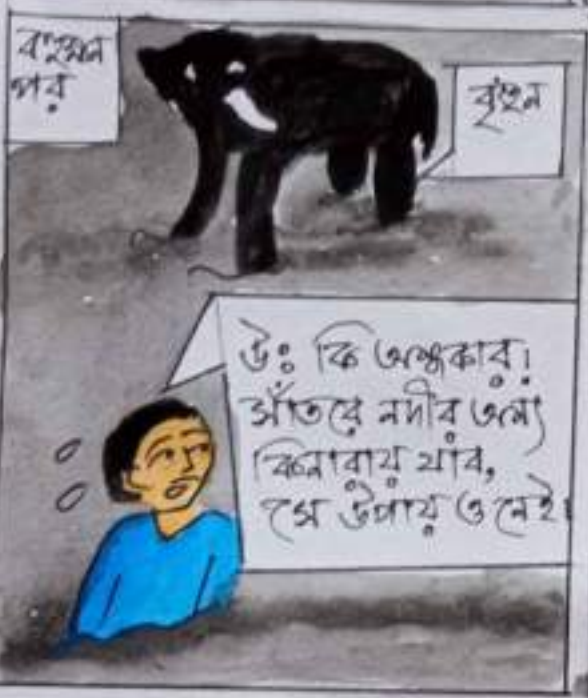 বহুক্ষন
পর
বৃংহন
উঃ কি অন্ধকার!
সাঁতরে নদীর অন্য
কিনারায় যাব,
সে উপায় ও নেই।